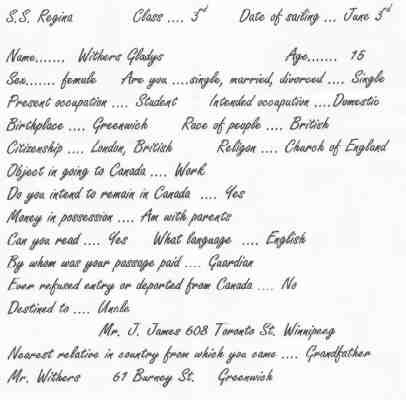 S.S. Regina Class .... 3rd Date of sailing ... June 3rd
Name....... Withers Gladys Age....... 15
Sex....... female Are you ....single, married, divorced .... Single
Present occupation .... Student Intended occupation ....Domestic
Birthplace .... Greenwich Race of people .... British
Citizenship .... London, British Religon .... Church of England
Object in going to Canada .... Work
Do you intend to remain in Canada .... Yes
Money in possession .... Am with parents
Can you read .... Yes What language .... English
By whom was your passage paid .... Guardian
Ever refused entry or deported from Canada .... No
Destined to .... Uncle
Mr. J. James 608 Toronto St. Winnipeg
Nearest relative in country from which you came .... Grandfather
Mr. Withers 61 Burney St. Greenwich